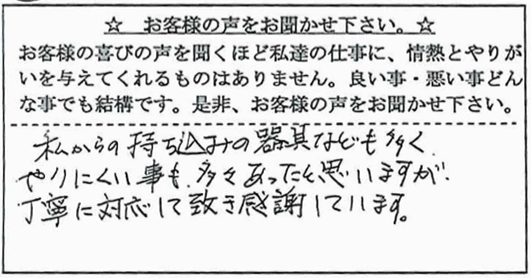 ☆ お客様の声をお聞かせ下さい。☆
お客様の喜びの声を聞くほど私達の仕事に、情熱とやりが
いを与えてくれるものはありません。良い事・悪い事どん
な事でも結構です。是非、お客様の声をお聞かせ下さい。
私からの持ち込みの器具なども多く
やりにくい事も多々あったと思いますが
丁寧に対応して致き感謝しています。